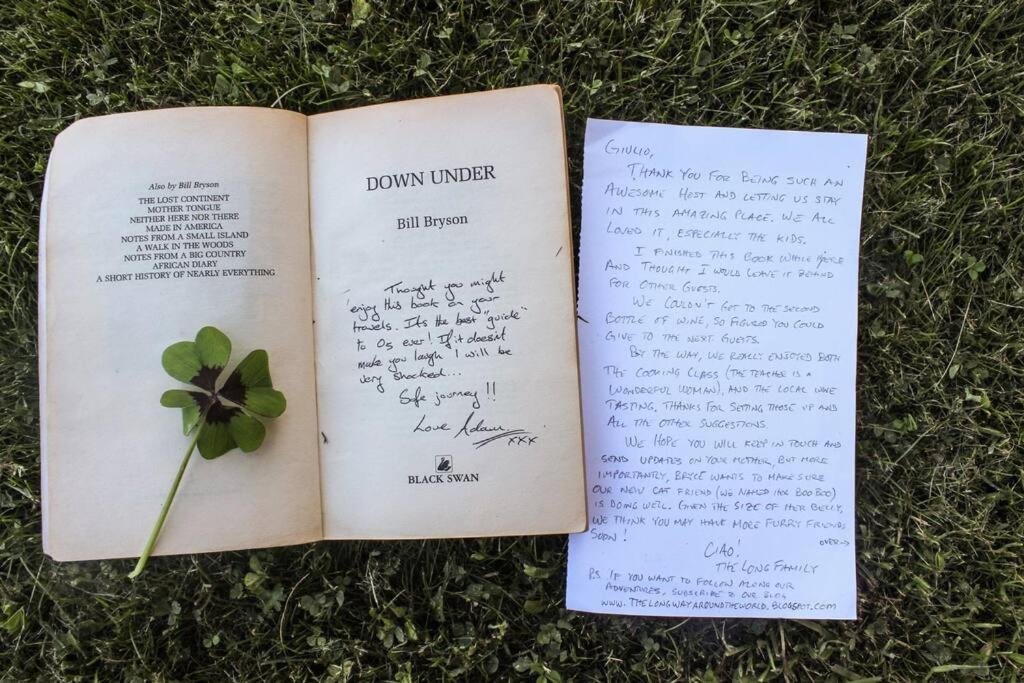 Also by Bill Bryson
THE LOST CONTINENT
MOTHER TONGUE
NEITHER HERE NOR THERE
MADE IN AMERICA
NOTES FROM A SMALL ISLAND
A WALK IN THE WOODS
NOTES FROM A BIG COUNTRY
AFRICAN DIARY
A SHORT HISTORY OF NEARLY EVERYTHING
DOWN UNDER
Bill Bryson
Thought you might
enjoy this book on your
travels. Its the best "guide"
to Os ever! If it doesn't
make you laugh I will be
very shocked...
Safe journey!!
Love Adam
xxx
BLACK SWAN
GIULIO,
THANK YOU FOR BEING SUCH AN
AWESOME HOST AND LETTING US STAY
IN THIS AMAZING PLACE. WE ALL
LOVED IT, ESPECIALLY THE KIDS.
I FINISHED THIS BOOK WHILE HERE
AND THOUGHT I WOULD LEAVE IT BEHIND
FOR OTHER GUESTS.
WE COULDN'T GET TO THE SECOND
BOTTLE OF WINE, SO FIGURED YOU COULD
GIVE TO THE NEXT GUESTS.
BY THE WAY, WE REALLY ENJOYED BOTH
THE COOKING CLASS (THE TEACHER IS A
WONDERFUL WOMAN), AND THE LOCAL WINE
TASTING. THANKS FOR SETTING THOSE UP AND
ALL THE OTHER SUGGESTIONS.
WE HOPE YOU WILL KEEP IN TOUCH AND
SEND UPDATES ON YOUR MOTHER, BUT MORE
IMPORTANTLY, BRYCE WANTS TO MAKE SURE
OUR NEW CAT FRIEND (WE NAMED HER BOO BOO)
IS DOING WELL. GIVEN THE SIZE OF HER BELLY,
WE THINK YOU MAY HAVE MORE FURRY FRIENDS
SOON!
OVER→
CIAO!
THE LONG FAMILY
P.S. IF YOU WANT TO FOLLOW ALONG OUR
ADVENTURES, SUBSCRIBE TO OUR BLOG
WWW.THELONGWAYAROUNDTHEWORLD.BLOGSPOT.COM